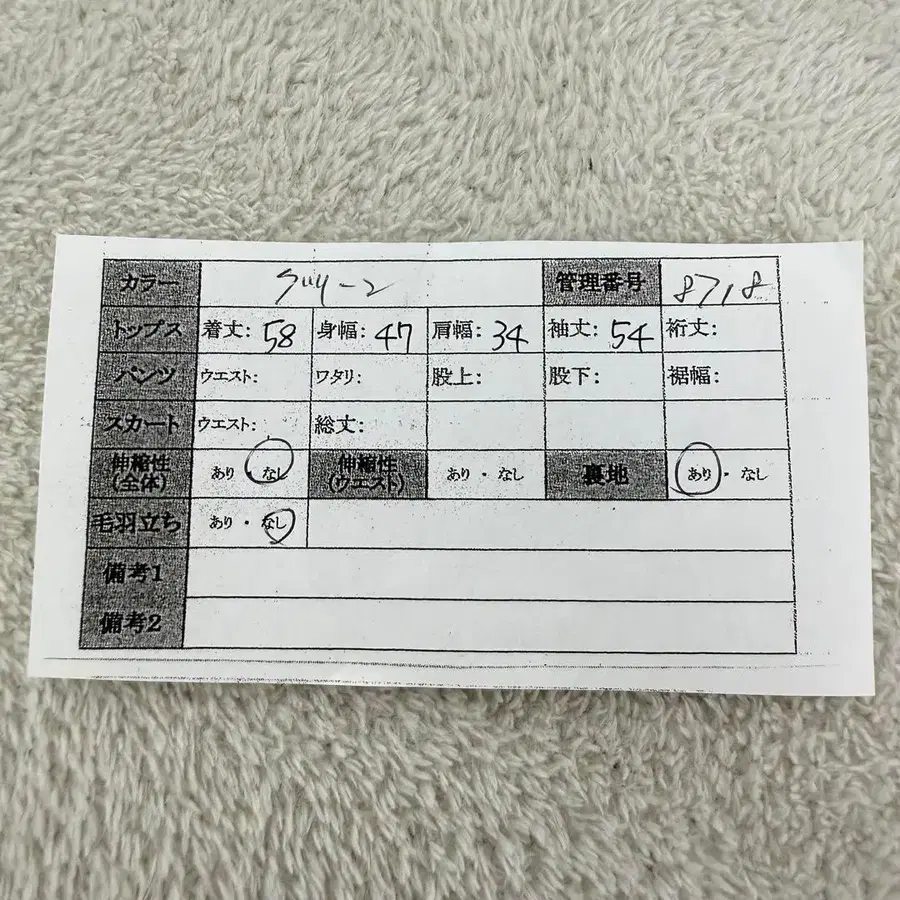 カラー グリーン 管理番号 8718
トップス 着丈: 58 身幅: 47 肩幅: 34 袖丈: 54 裄丈:
パンツ ウエスト: ワタリ: 股上: 股下: 裾幅:
スカート ウエスト: 総丈:
伸縮性(全体) あり・なし 伸縮性(ウエスト) あり・なし 裏地 あり・なし
毛羽立ち あり・なし
備考1
備考2